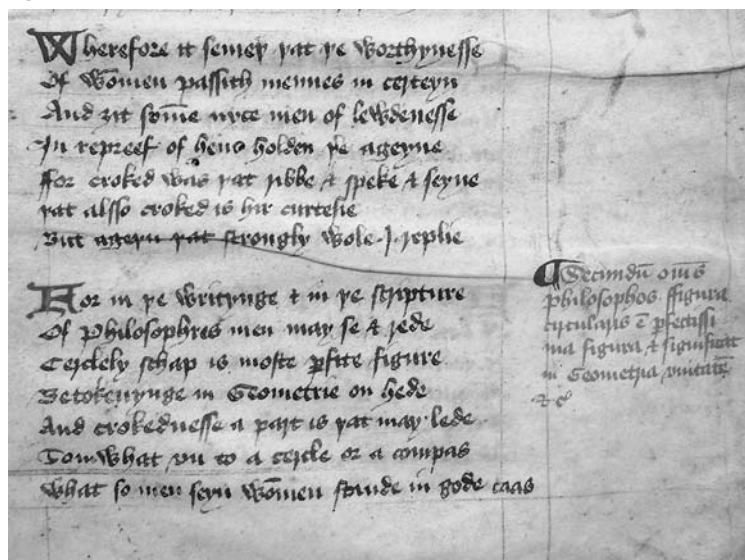 Wherefore it semeþ þat þe worthynesse
Of wōmen passith mennes in certeyn
And ȝit som̄e nyce men of lewdenesse
In repreef of hem holden þe ageyne
ffor croked was þat ribbe & speke & seyne
þat alsso croked is hir curtesie
But ageyn þat strongly wole I replie
For in þe writynge & in þe scripture
Of Philosophres men may se & rede
Cerclely schap is moste ꝑfite figure
Betokenynge in Geometrie on hede
And crokednesse a part is þat may lede
Som what vn to a cercle or a compas
What so men seyn wōmen stande in gode caas
¶ Secundū om̄s
philosophos ffigura
circularis ē ꝑfectissi
ma figura & significat
in Geometria vnitatē
&c̄